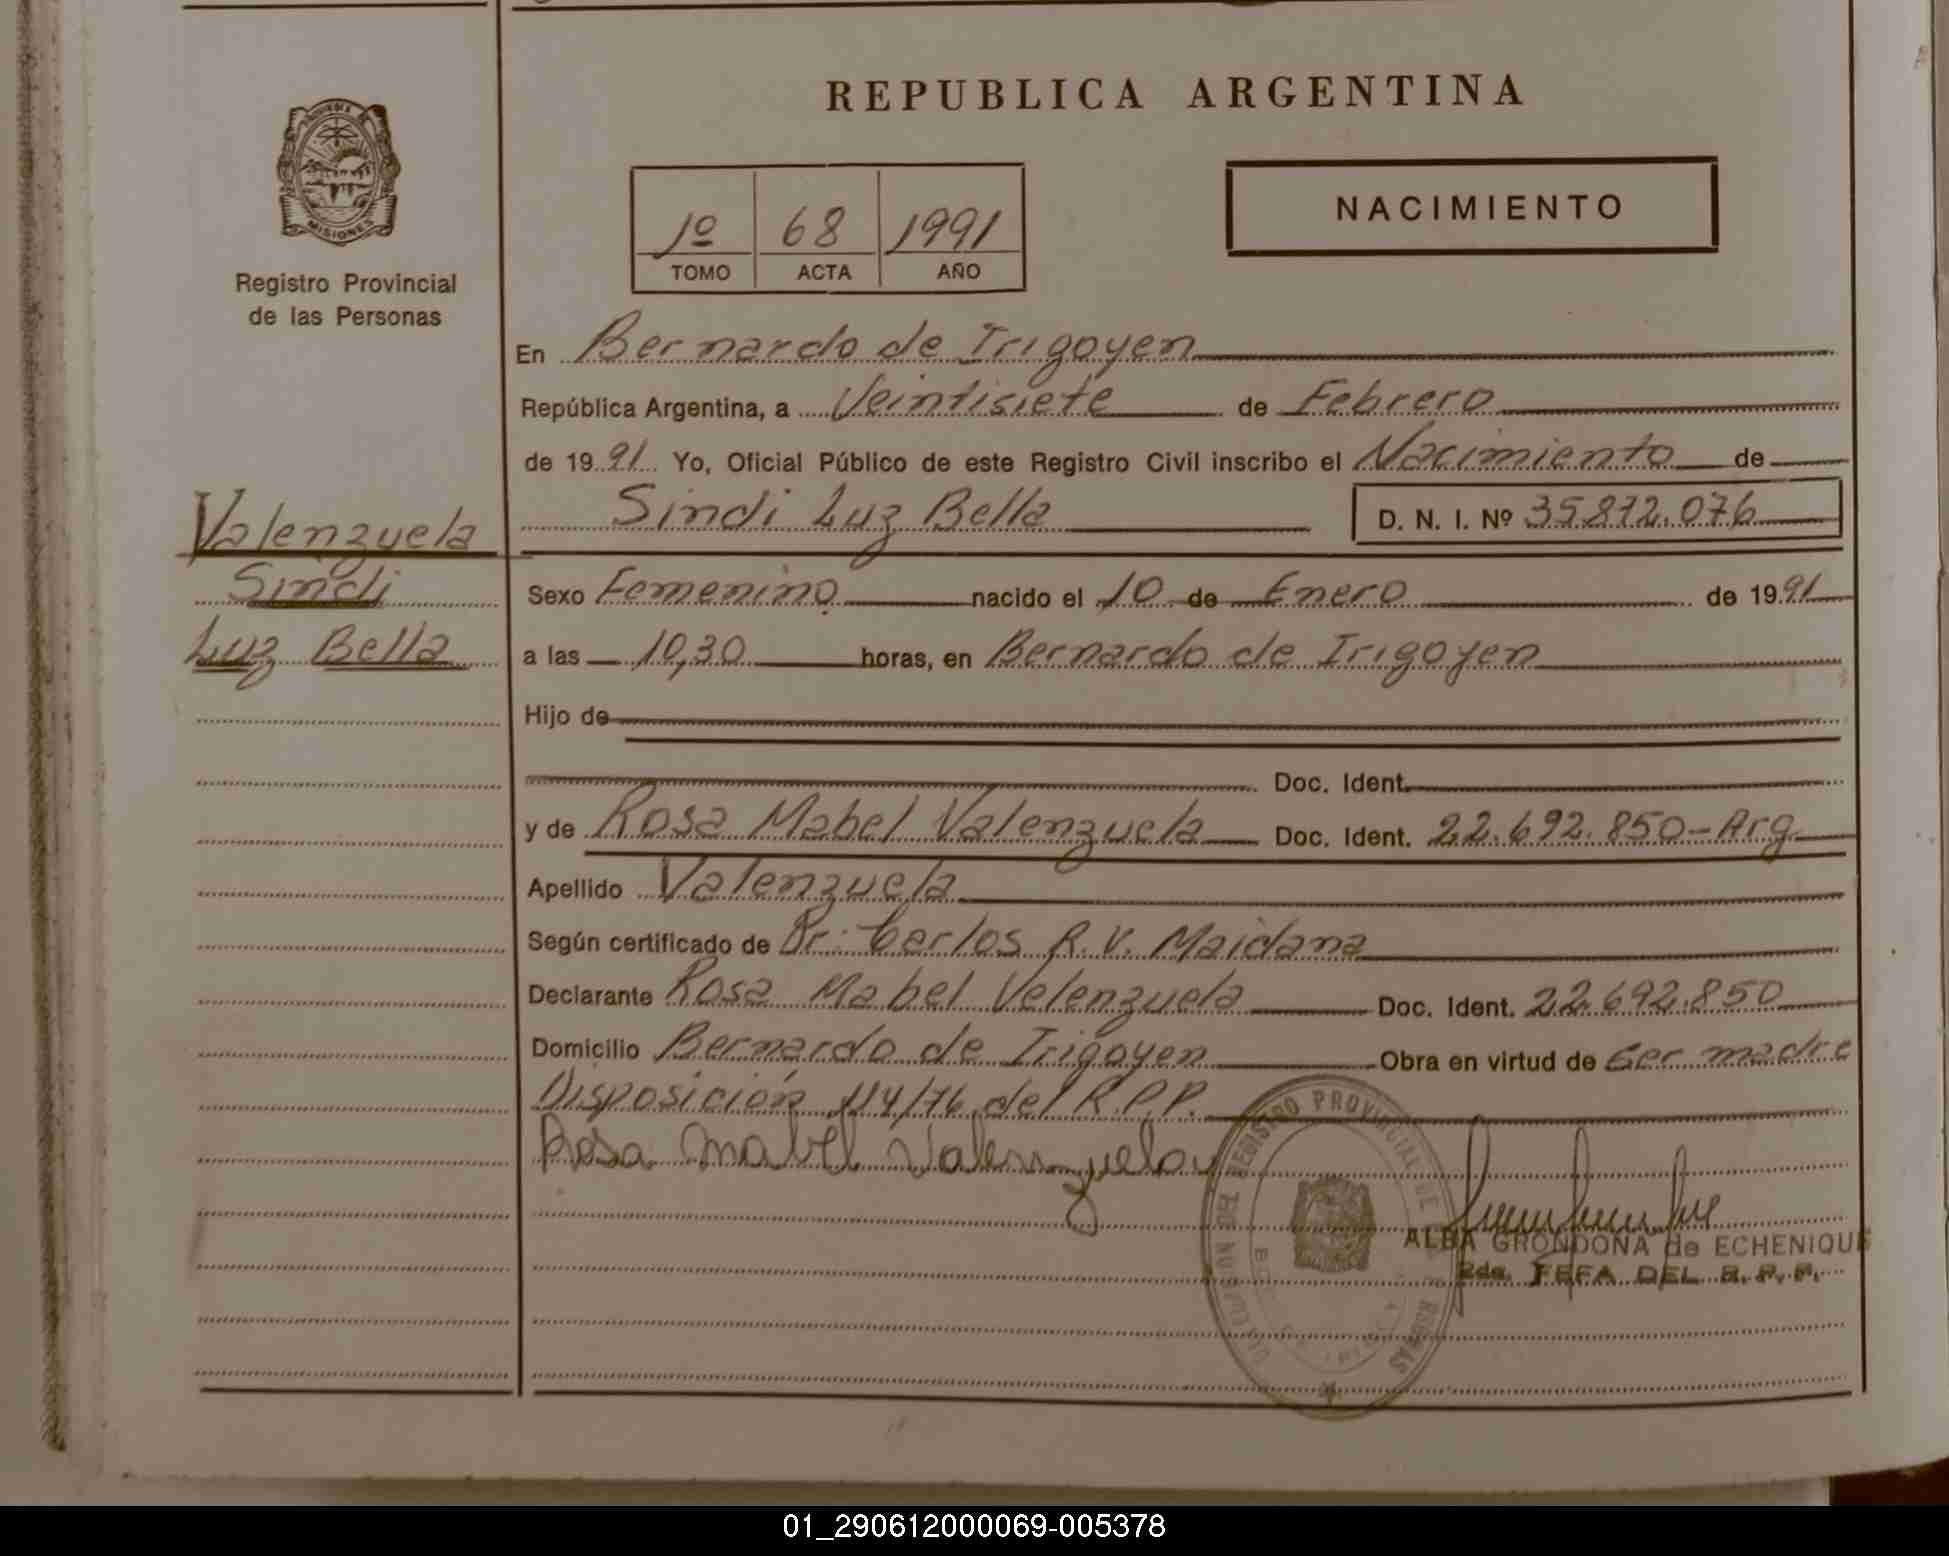 REPUBLICA ARGENTINA
MISIONES
Registro Provincial
de las Personas
1º 68 1991
TOMO ACTA AÑO
NACIMIENTO
En Bernardo de Irigoyen
República Argentina, a Veintisiete de Febrero
de 1991 Yo, Oficial Público de este Registro Civil inscribo el Nacimiento de
Sindi Luz Bella D. N. I. Nº 35.872.076
Valenzuela
Sindi
Luz Bella
Sexo Femenino nacido el 10 de Enero de 1991
a las 10,30 horas, en Bernardo de Irigoyen
Hijo de
Doc. Ident.
y de Rosa Mabel Valenzuela Doc. Ident. 22.692.850-Arg.
Apellido Valenzuela
Según certificado de Dr. Carlos R. V. Maidana
Declarante Rosa Mabel Valenzuela Doc. Ident. 22.692.850
Domicilio Bernardo de Irigoyen Obra en virtud de Ser madre
Disposición 114/76 del R.P.P.
Rosa Mabel Valenzuela
REGISTRO PROVINCIAL DE
ALBA GRONDONA de ECHENIQUE
2da. JEFA DEL R. P. P.
01_290612000069-005378